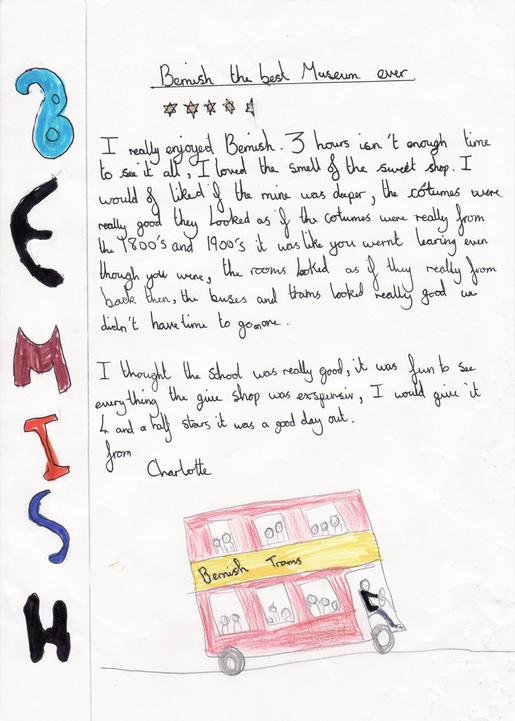 BEMISH
Bemish the best Museum ever
I really enjoyed Bemish. 3 hours isn't enough time
to see it all, I loved the smell of the sweet shop. I
would of liked if the mine was deeper, the cotumes were
really good they looked as if the cotumes were really from
the 1800's and 1900's it was like you wernt learing even
though you were, the rooms looked as if they really from
back then, the buses and trams looked really good we
didn't have time to go on one..
I thought the school was really good, it was fun to see
everything the give shop was exspensiv, I would give it
4 and a half stars it was a good day out.
from
Charlotte
Bemish Trams